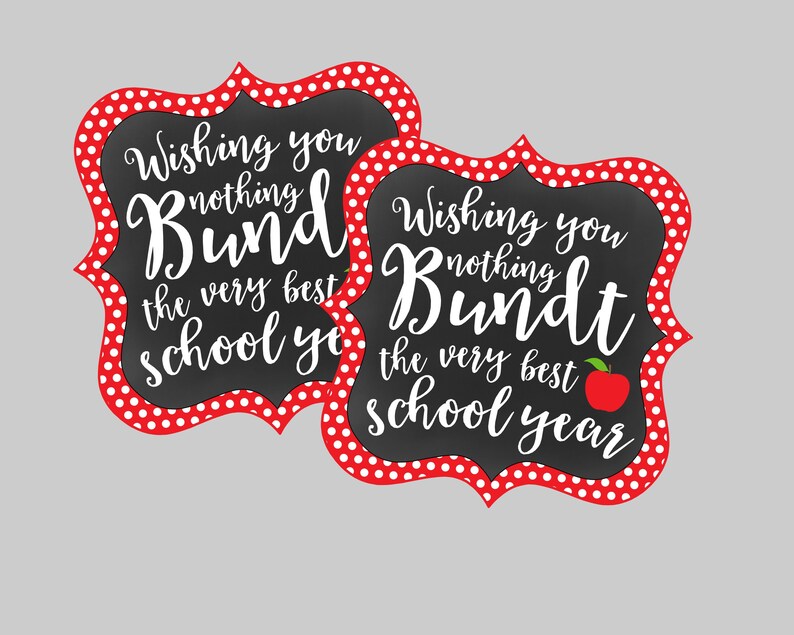 Wishing you
nothing
Bund
the very best
school ye
Wishing you
nothing
Bundt
the very best
school year